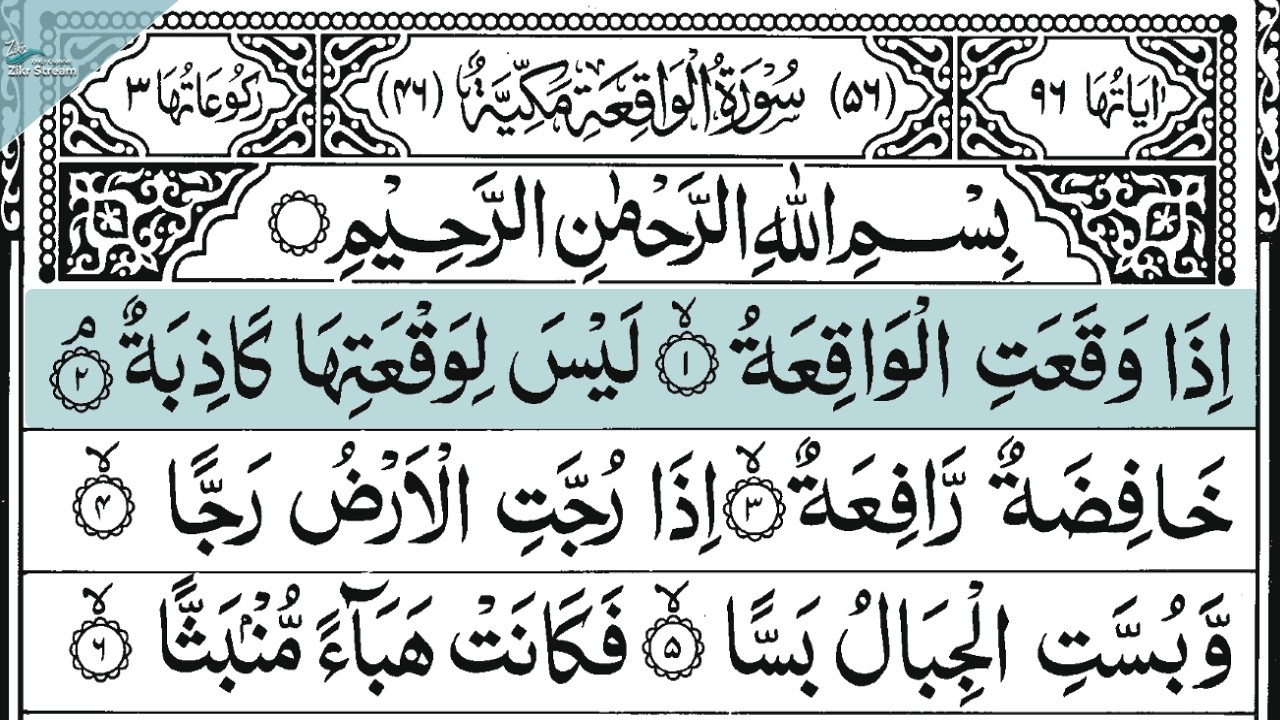 Zikr
Zikr Stream
اٰيَاتُهَا ٩٦
(٥٦) سُوْرَةُ الْوَاقِعَةِ مَكِّيَّةٌ (٤٦)
رُكُوْعَاتُهَا ٣
بِسْمِ اللّٰهِ الرَّحْمٰنِ الرَّحِيْمِ
اِذَا وَقَعَتِ الْوَاقِعَةُ ۙ ١ لَيْسَ لِوَقْعَتِهَا كَاذِبَةٌ ۘ ٢
خَافِضَةٌ رَّافِعَةٌ ۙ ٣ اِذَا رُجَّتِ الْاَرْضُ رَجًّا ۙ ٤
وَّبُسَّتِ الْجِبَالُ بَسًّا ۙ ٥ فَكَانَتْ هَبَآءً مُّنْۢبَثًّا ۙ ٦